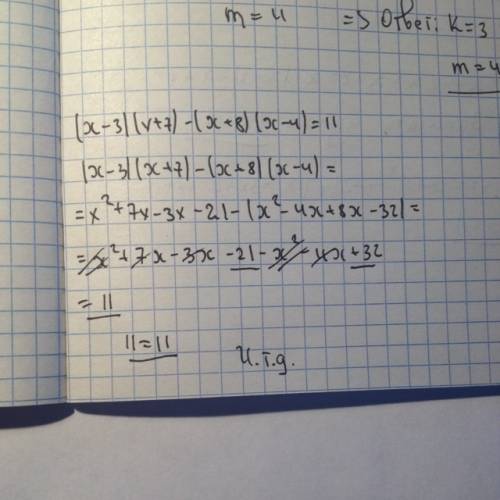 m = 4 => Ответ: k = 3
m = 4
(x-3)(x+7)-(x+8)(x-4)=11
(x-3)(x+7)-(x+8)(x-4)=
=x²+7x-3x-21-(x²-4x+8x-32)=
=x²+7x-3x-21-x²-4x+32
=11
11=11
И.т.д.